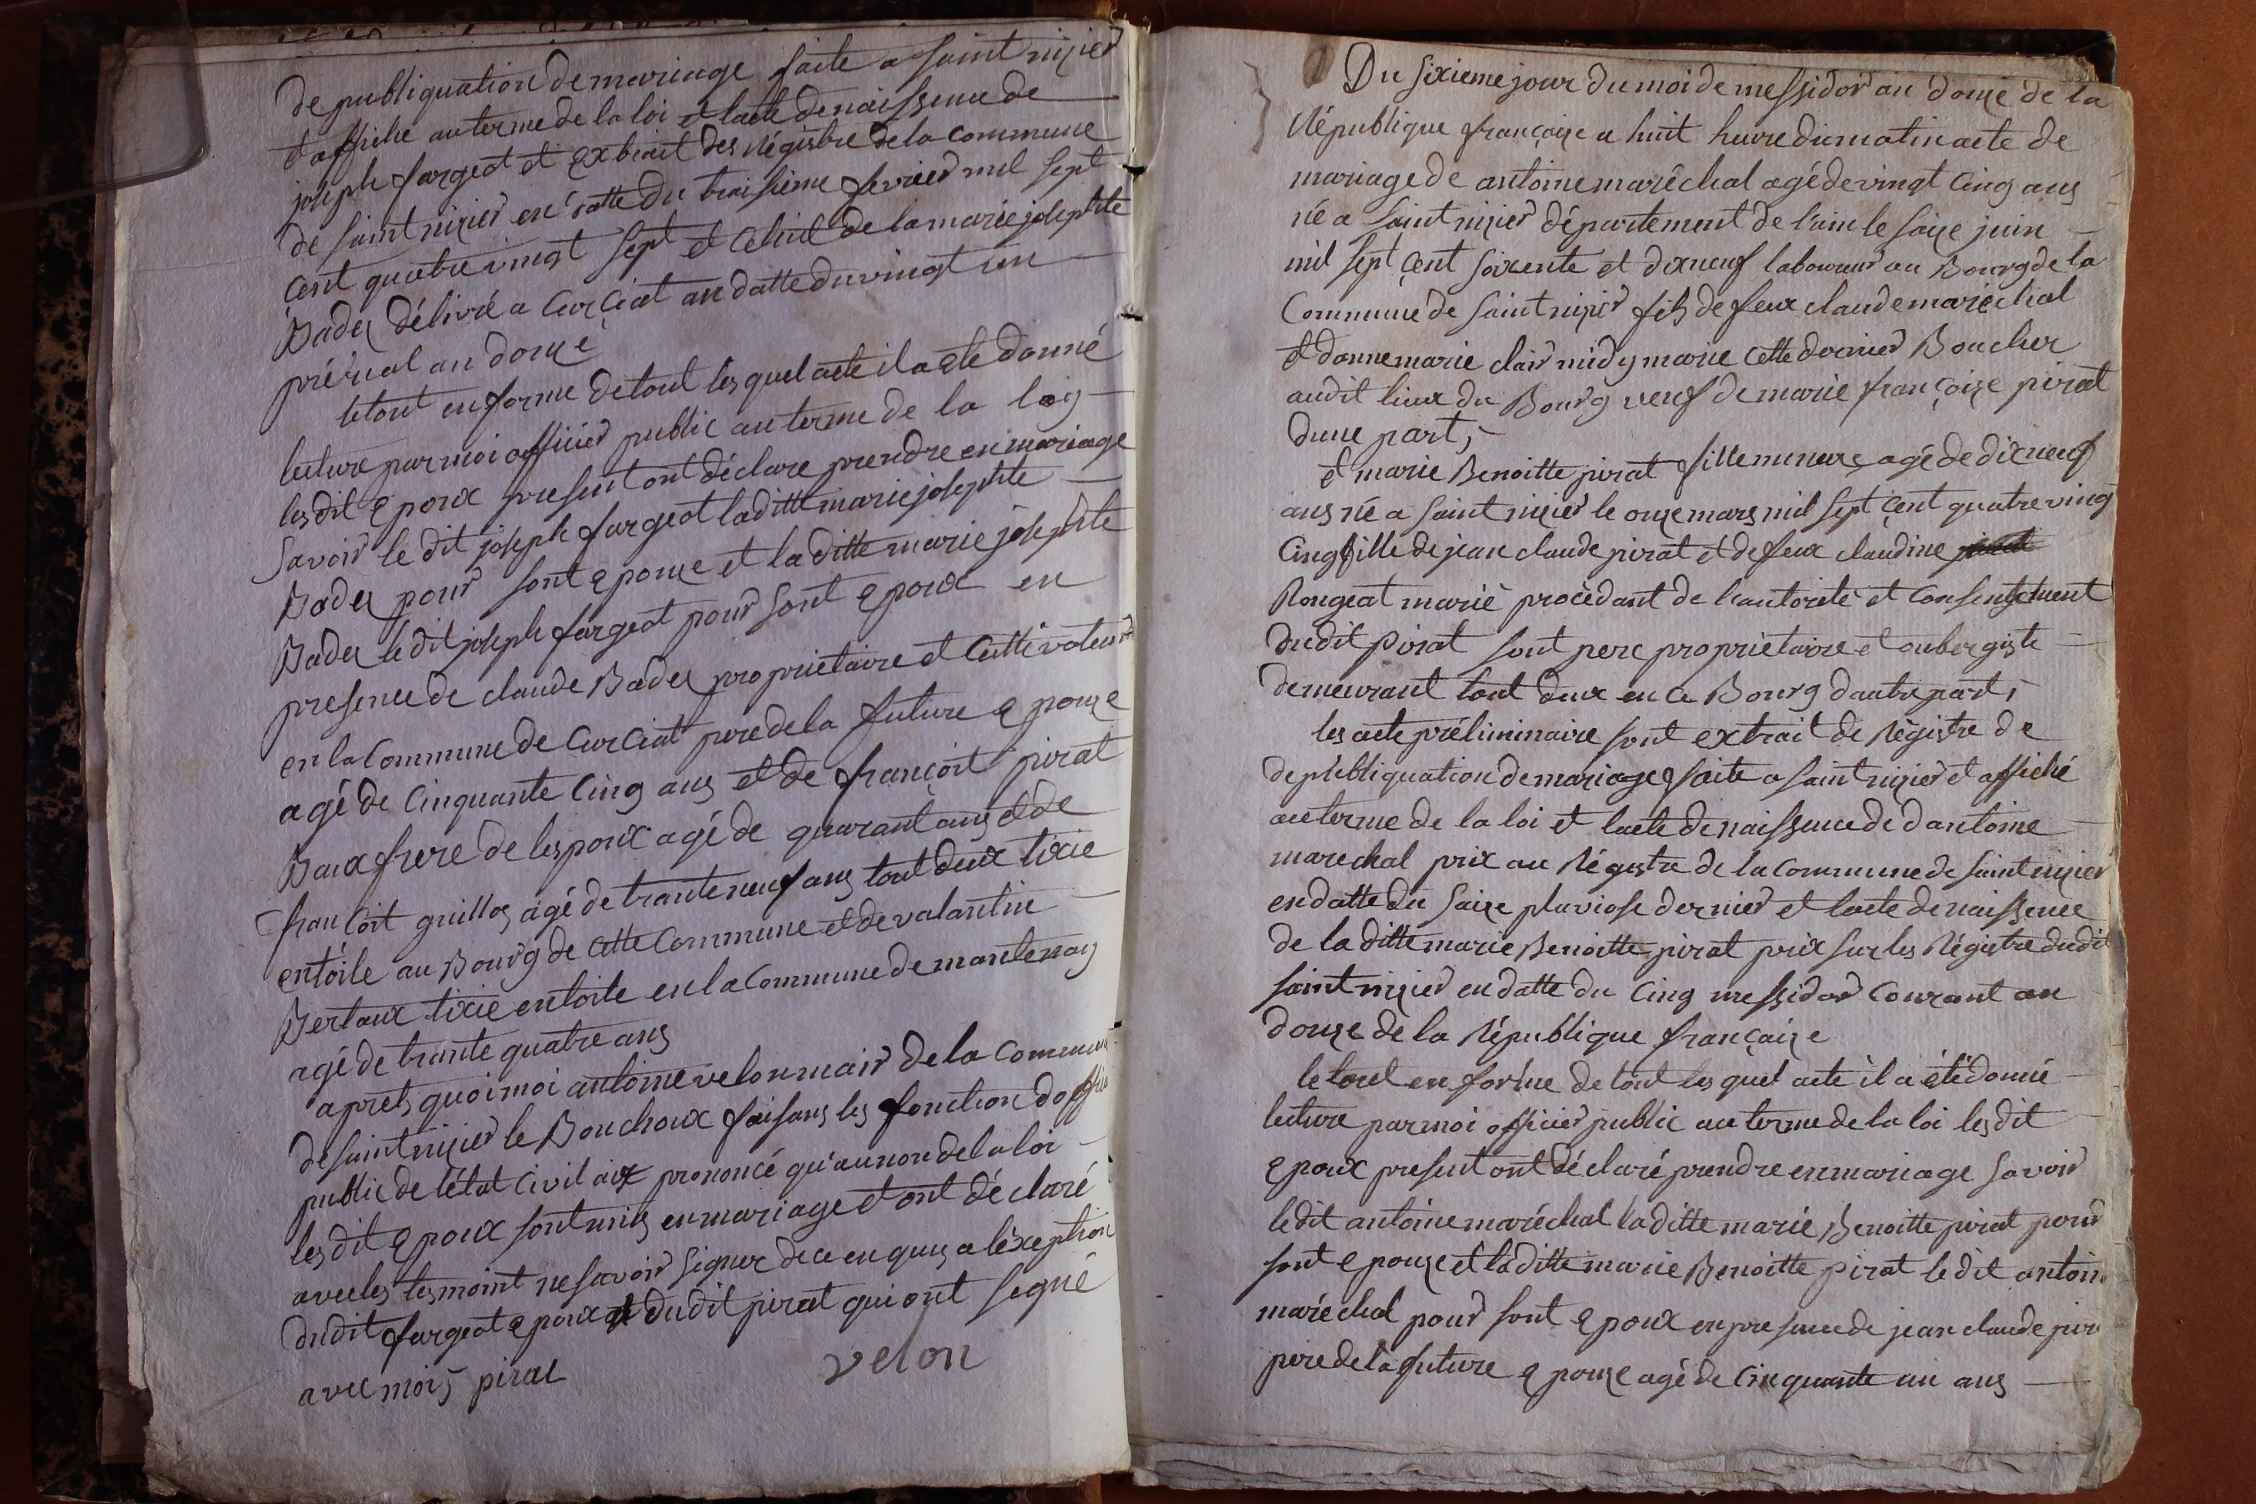 de publiquation de mariage faite a saint nizier
et affiché au terme de la loi et lacte de naissence de
joseph fargeot et extrait des Régistre de la commune
de saint nizier en datte du traisième fevrier mil sept
cent quatre vingt sept et celuil de la marie josephte
Badez délivré a curciat an datte du vingt un
prérial an douze
le tout en forme de tout les quel acte il a ete donné
lecture par moi officier public au terme de la loy
les dit epoux present ont déclare prendre en mariage
savoir le dit joseph fargeot la ditte marie josephte
Badez pour sont epouze et la ditte marie josephte
Badez le dit joseph fargeot pour sont epoux en
presence de claude Badez proprietaire et cultivateur
en la commune de Curciat pere de la future epouze
agé de cinquante cinq ans et de françoit pirat
Baux frere de lespoux agé de quarant ans et de
francoit guilloz agé de trante neuf ans tout deux tixie
entoile au Bourg de cette commune et de valantin
Bertaux tixie entoile en la commune de mantenay
agé de trante quatre ans
aprets quoi moi antoine velon mair de la commune
de saint nizier le Bouchoux faisans les fonction doffici
public de létat civil aix prononcé qu'au non de la loi
les dit epoux sont unis en mariage et ont déclaré
avec les tesmoint ne savoir signer de ce enquis a léxception
dudit fargeot epoux et dudit pirat qui ont segné
avec moi; pirat velon
Du sixieme jour du moi de messidor an douze de la
République françaize a huit heure du matin acte de
mariage de antoine maréchal agé de vingt cinq ans
né a saint nizier département de l'ain le saize juin
mil sept cent soixente et dixneuf laboureur au Bourg de la
Commune de saint nizier fils de feux claude maréchal
et donne marie clair midy marie cette dernier Boucher
au dit lieux du Bourg veuf de marie françoize pirat
dune part;
et marie Benoitte pirat fille mineure agé de dix neuf
ans né a saint nizier le onze mars mil sept cent quatre ving
cinq fille de jean claude pirat et de feux claudine
Rongeat marié procèdant de l'autorité et consentement
dudit pirat sont pere proprietaire et aubergiste
demeurant tout deux en ce Bourg dautre part;
les acte préliminaire sont extrait de Régistre de
de publiquation de mariage faite a saint nizier et affiché
au terme de la loi et lacte de naissence de dantoine
marechal prix au Régistre de la commune de saint nizier
en datte du saize pluviose dernier et lacte de naissence
de la ditte marie Benoitte pirat prix sur les Régistre dudit
saint nizier en datte du cinq messidor courant an
douze de la République françaize
le tout en forme de tout les quel acte il a été donné
lecture par moi officier public au terme de la loi les dit
epoux present ont déclaré prendre en mariage savoir
le dit antoine maréchal la ditte marie Benoitte pirat pour
sont epouze et la ditte marie Benoitte pirat le dit antoin
maréchal pour sont epoux en presence de jean claude pira
pere de la future epouze agé de cinquante un ans